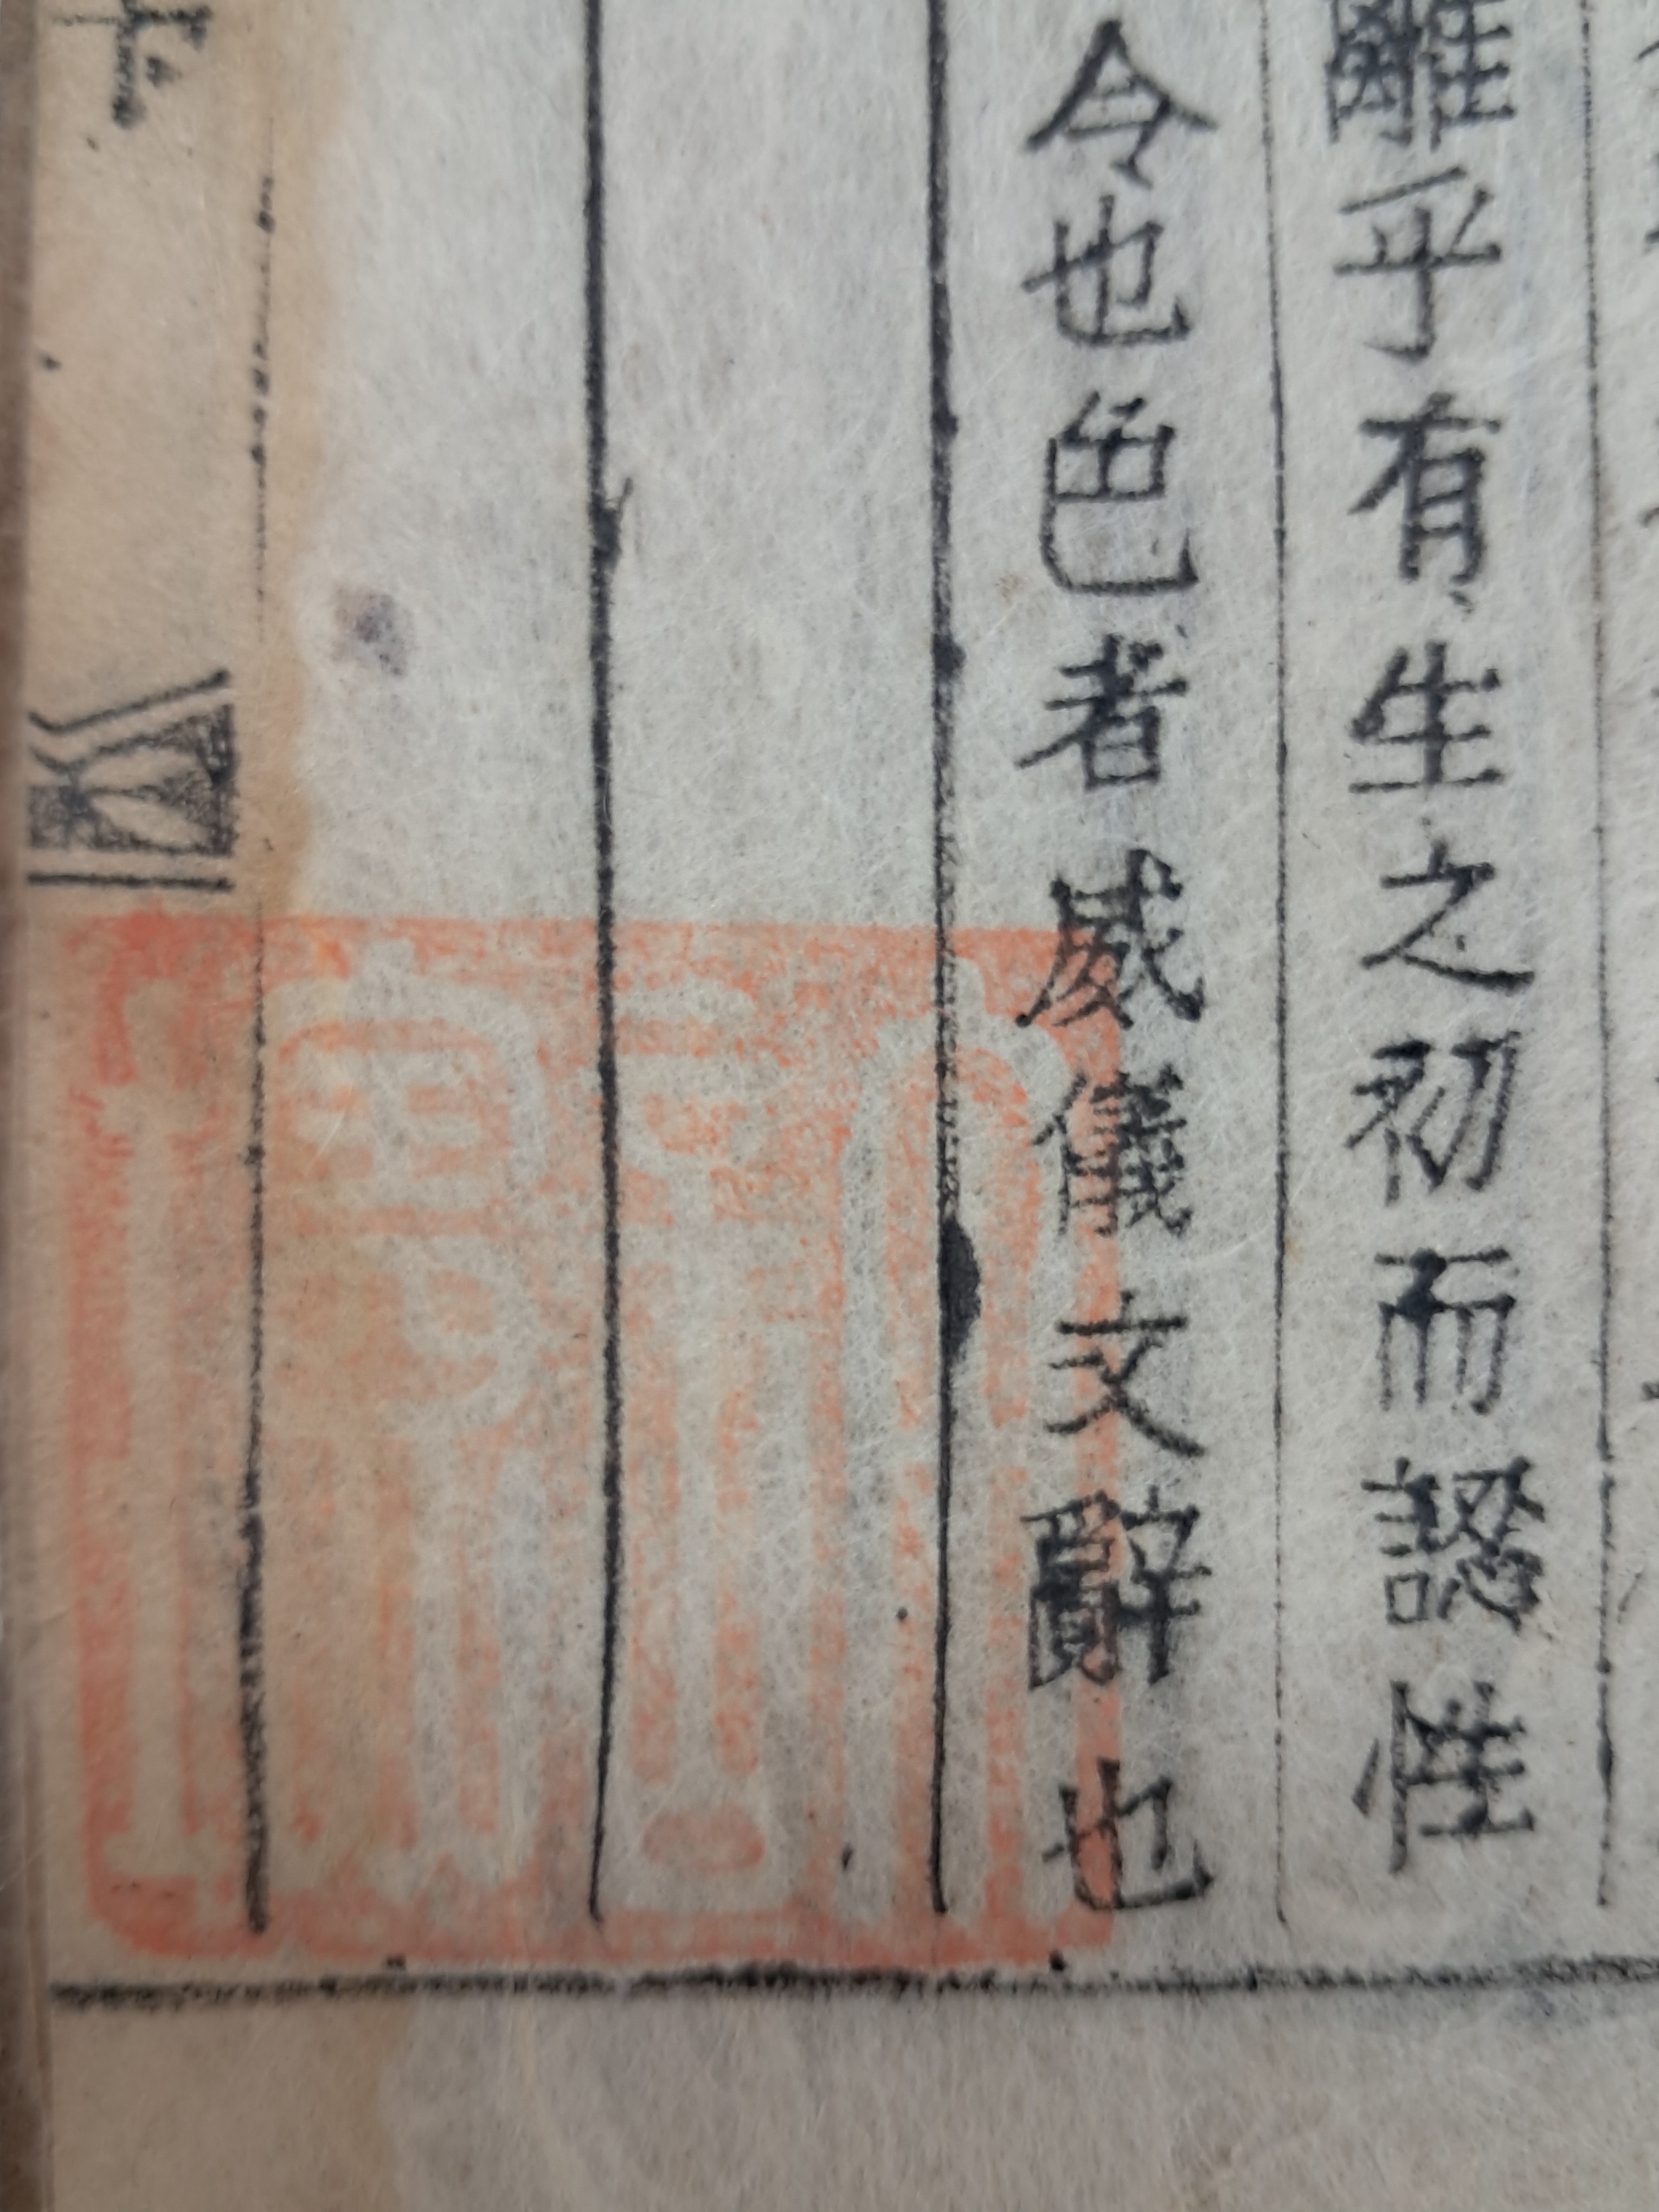 離乎有生之初而認性
令也色者威儀文辭也
下